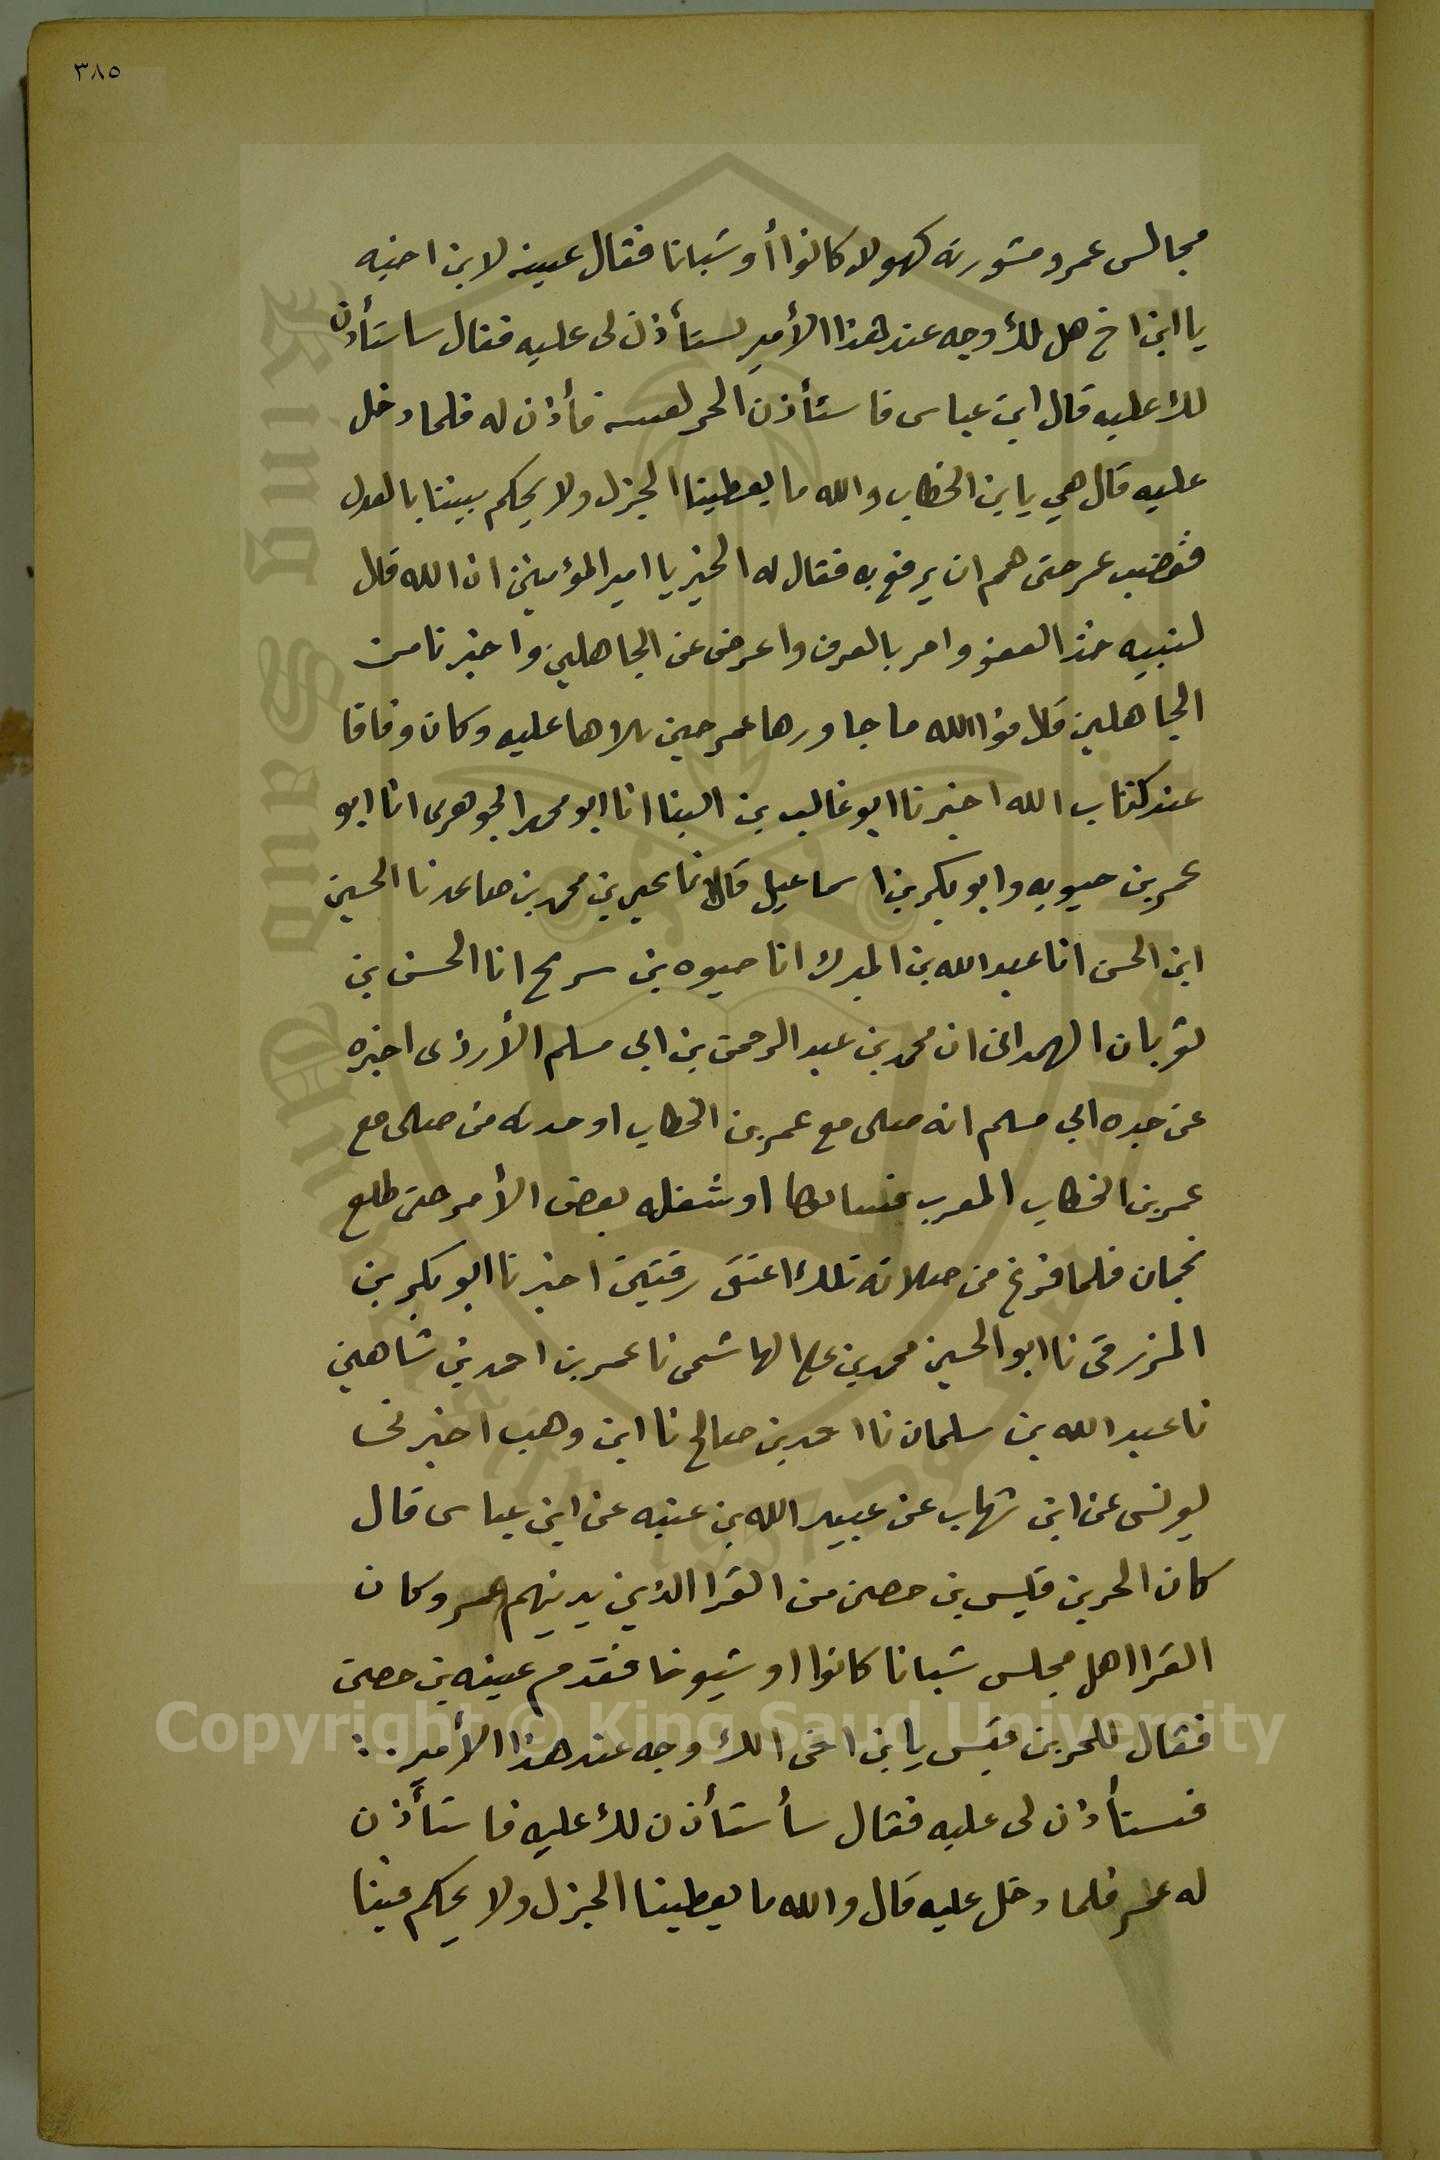 ٣٨٥
مجالس عمر ومشورته كهولا كانوا أو شبانا فقال عيينه لابن اخيه
يا ابن اخ هل لك وجه عند هذا الأمير لستأذن لى عليه فقال ساستأذن
لك عليه قال ابن عباس فاستأذن الحر لعيينه فأذن له فلما دخل
عليه قال هي يابن الخطاب والله ما يعطينا الجزل ولا يحكم بيننا بالعدل
فغضب عمر حتى هم ان يرقع به فقال له الحر يا امير المؤمنين ان الله قال
لنبيه خذ العفو وامر بالعرف واعرض عن الجاهلين واخبرنا من
الجاهلين قال فوالله ما جاورها عمر حين تلاها عليه وكان وقافا
عند كتاب الله اخبرنا ابو غالب بن البنا انا ابو محمد الجوهرى انا ابو
عمر بن حيويه وابو بكر بن اسماعيل قالا نا يحيى بن محمد بن صاعد نا الحسين
ابن الحسن انا عبد الله بن المبرك انا حيوه بن سريح انا الحسن بن
ثوبان الهمدانى ان محمد بن عبد الرحمن بن ابى مسلم الأزدى اخبره
عن جده ابى مسلم انه صلى مع عمر بن الخطاب او حدثه من صلى مع
عمر بن الخطاب المغرب فمسا بها او شغله بعض الأمر حتى طلع
نجمان فلما فرغ من صلاته تلك اعتق رقبتين اخبرنا ابو بكر بن
المزرقى نا ابو الحسين محمد بن على الهاشمى نا عمر بن احمد بن شاهين
نا عبد الله بن سلمان نا احمد بن صالح نا ابن وهب اخبرنى
يونس عن ابن شهاب عن عبيد الله بن عتبه عن ابن عباس قال
كان الحر بن قيس بن حصن من القرا الذين يدنيهم عمر وكان
القرا اهل مجلس شبانا كانوا او شيوخا فقدم عيينه بن حصن
فقال للحر بن قيس يابن اخى الك وجه عند هذا الأمير
فستأذن لى عليه فقال سأستأذن لك عليه فاستأذن
له عمر فلما دخل عليه قال والله ما يعطينا الجزل ولا يحكم فينا
Copyright © King Saud University